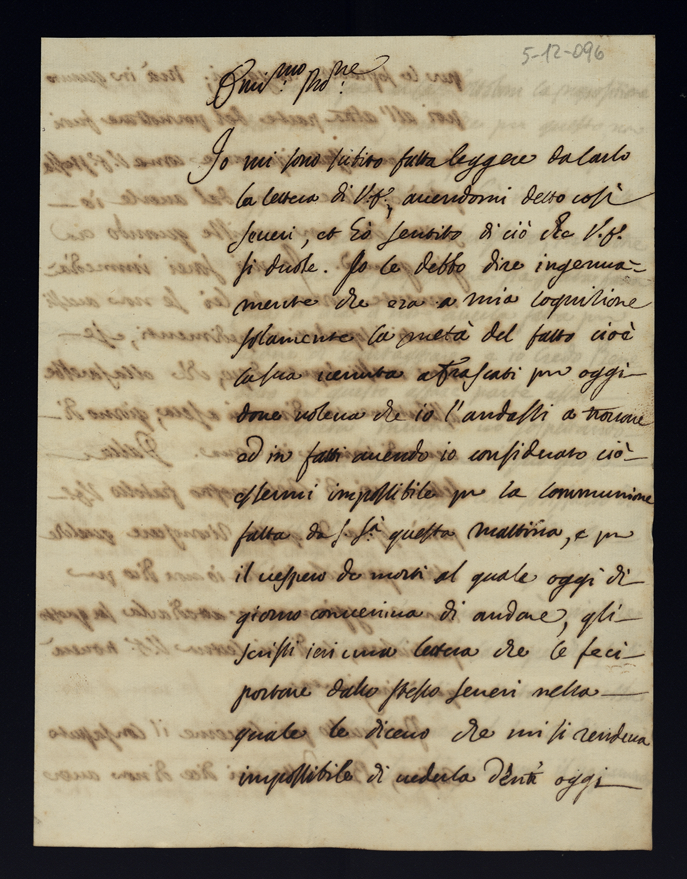 5-12-096
Emi.mo Pro.ne
Io mi sono subito fatta leggere da Carlo
la lettera di V.S., avendomi detto così
Severi, et hò sentito di ciò che V.S.
si duole. Io le debbo dire ingenua-
mente che era a mia cognitione
solamente la metà del fatto cioè
la sua venuta a Frascati per oggi
dove voleva che io l'andassi a trovare
ed in fatti avendo io considerato ciò
essermi impossibile per la communione
fatta da S. S.tà questa mattina, e per
il vespero de morti al quale oggi di
giorno conveniva di andare, gli
scrissi ieri una lettera che le feci
portare dallo stesso Severi nella
quale le dicevo che mi si rendeva
impossibile di vederla oggi